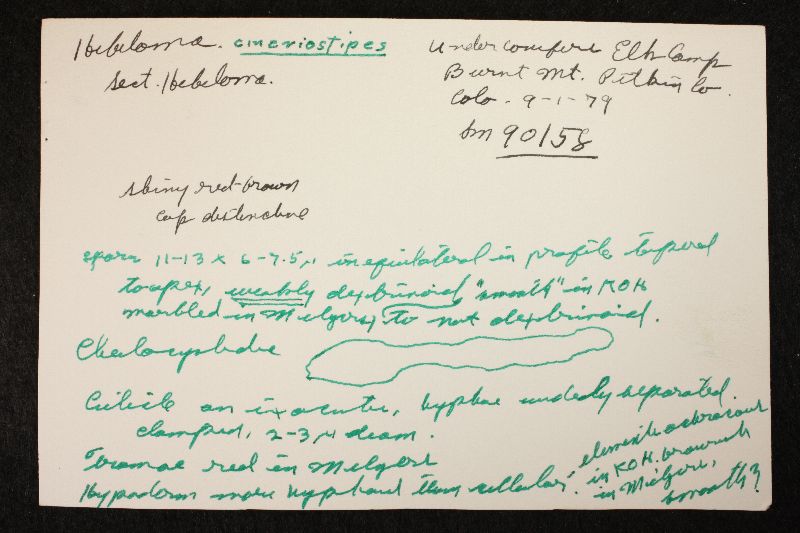 Hebeloma. cineriostipes
sect. Hebeloma.
Under conifers Elk Camp
Burnt Mt. Pitkin Co.
Colo. 9-1-79
Sm 90158
shiny red-brown
cap distinctive
spores 11-13 x 6-7.5 µ inequilateral in profile tapered
to apex, weakly dextrinoid "smooth" in KOH
marbled in Melzers, to not dextrinoid.
Cheilocystidia
Cuticle an ixocutis, hyphae widely separated.
clamped, 2-3 µ diam.
Tramae red in Melzers
Hypoderm more hyphoid than cellular: elements ochraceous
in KOH. brownish
in Melzers,
smooth?